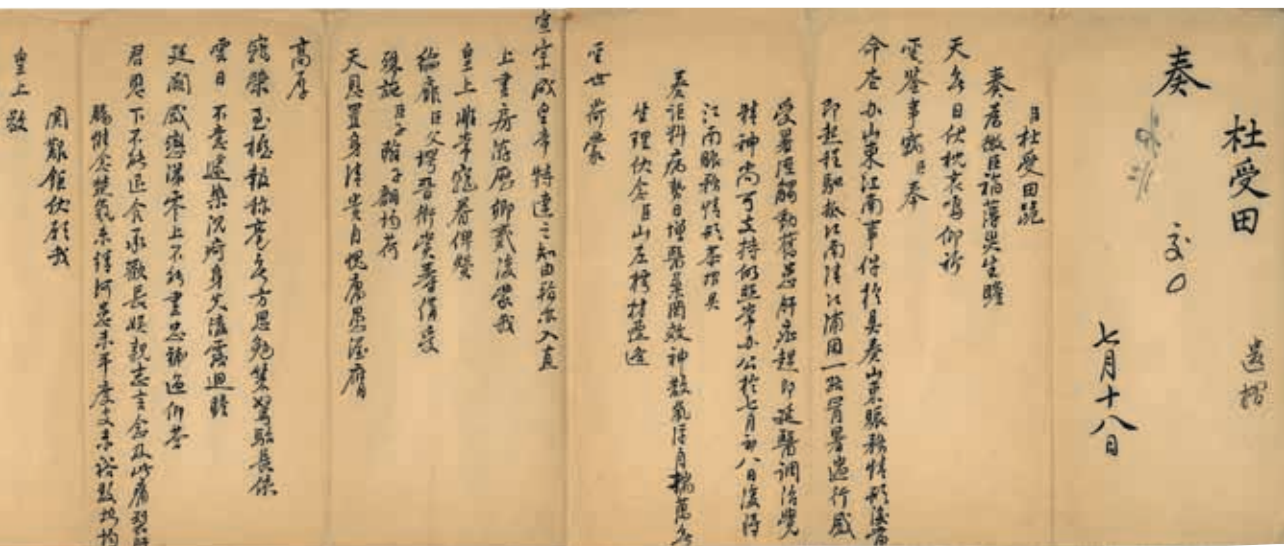 杜受田
奏
遺摺
七月十八日
臣杜受田跪
奏為微臣福薄災生瞻
天無日伏枕哀鳴仰祈
聖鑒事竊臣奉
命查辦山東江南事件於具奏山東賑務情形後當
即起程馳抵江南清江浦因一路冒暑遄行感
受暑溼觸動舊恙肝症趕即延醫調治覺
精神尚可支持仍照常辦公於七月初八日復將
江南賑務情形恭摺具
奏詎料病勢日增醫藥罔效神散氣浮自揣萬無
生理伏念臣山左樗材愚
世荷蒙
宣宗成皇帝特達之知由翰林入直
上書房游歷卿貳復蒙我
皇上龍李寵眷俾
綸扉臣父堮晉銜賞壽備受
殊施臣子翰子翮均荷
天恩置身清貴自愧庸愚渥膺
高厚
寵榮至極報稱毫無方思勉策駑駘長依
雲日不意遽染沉痾身先溘露迴瞻
廷闕感戀涕零上不能書思補過仰答
君恩下不能退食承歡長娛親志言念及此
皇上敬